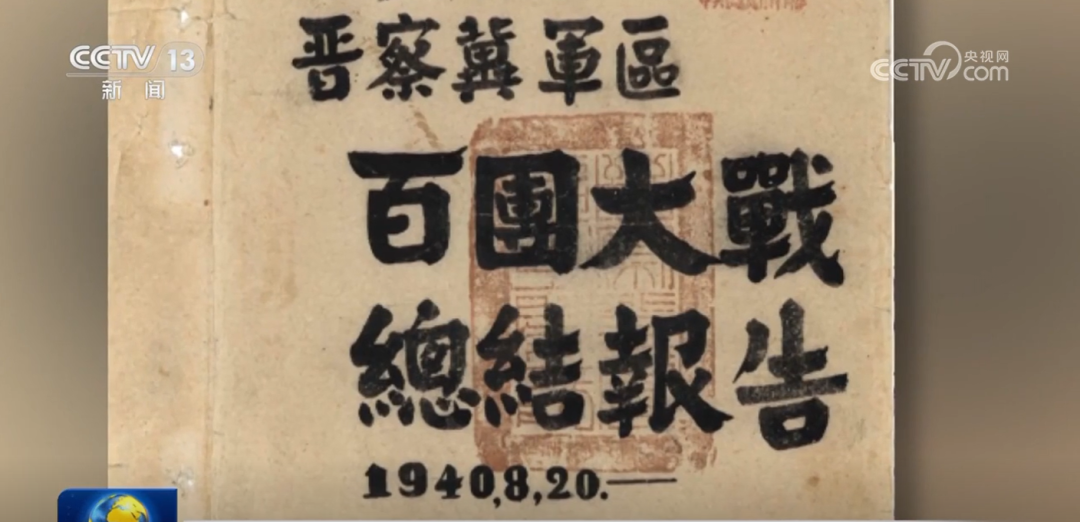 CCTV 13
新闻
央视网
CCTV.com
晋察冀軍區
百團大戰
總結報告
1940,8,20.——